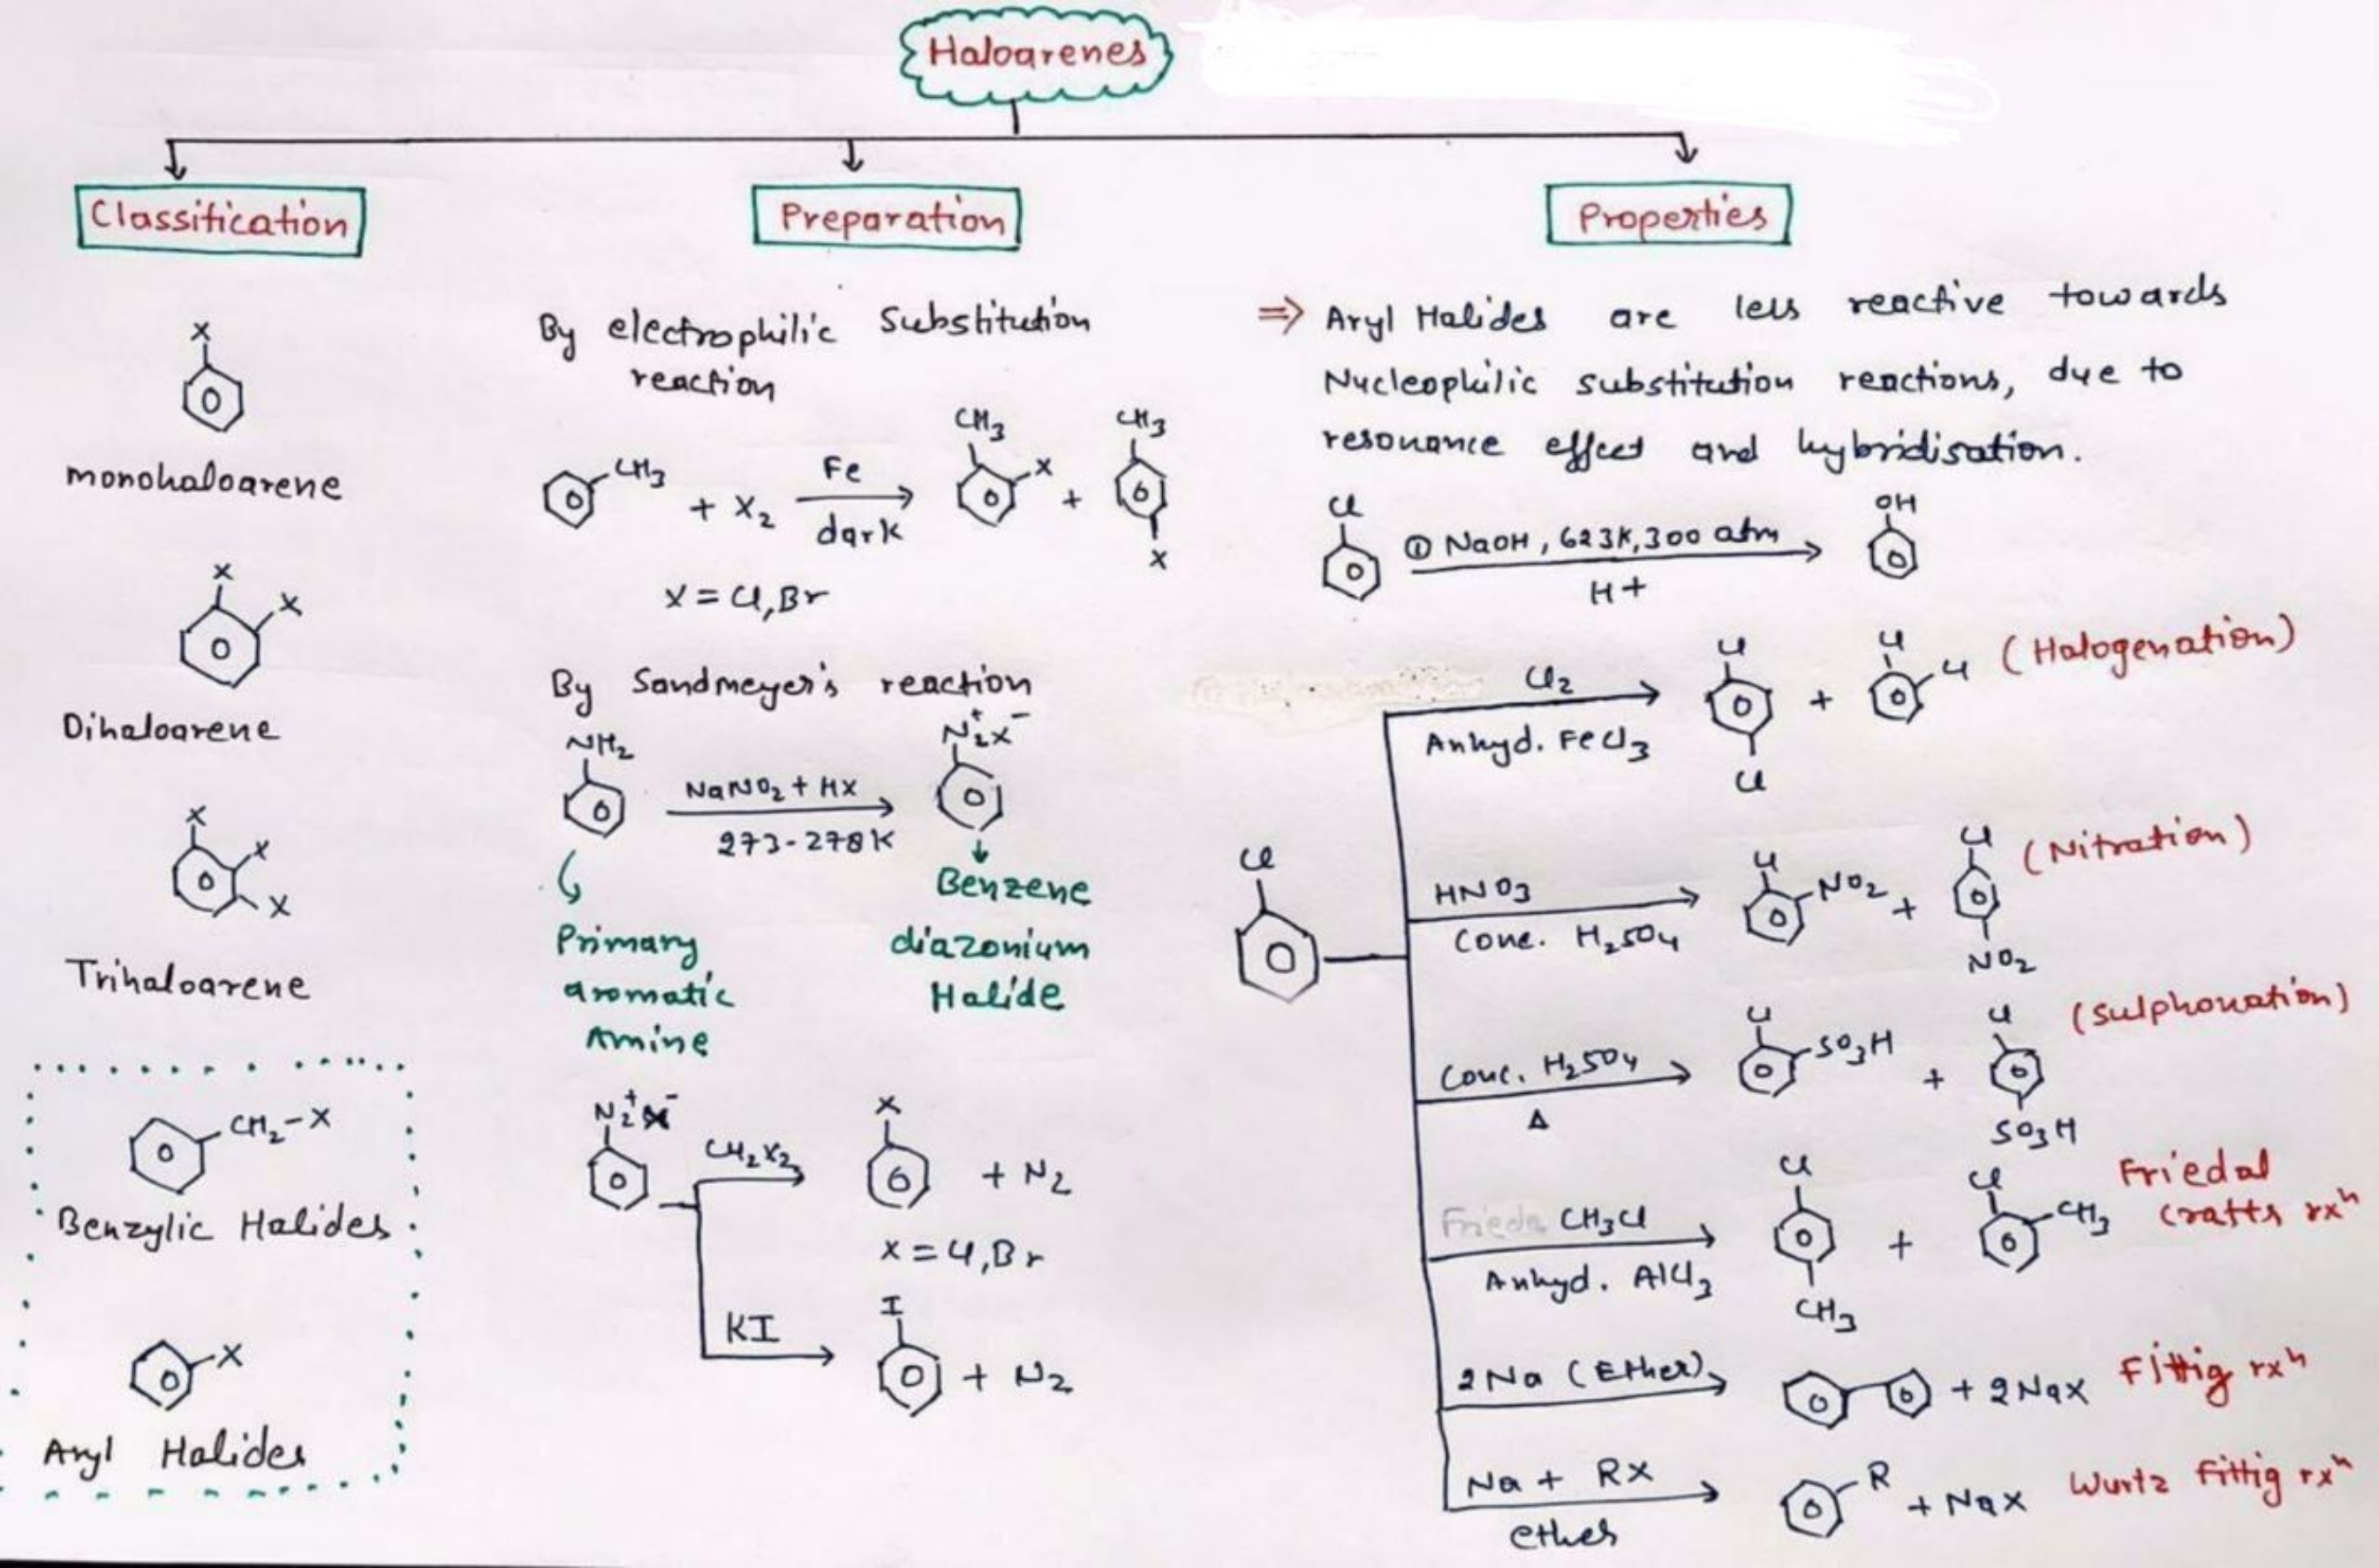 Haloarenes
Classification
X
monohaloarene
X
X
Dihaloarene
X
X
X
Trihaloarene
CH₂-X
Benzylic Halides
X
Aryl Halides
Preparation
By electrophilic Substitution
reaction
CH₃ + X₂ Fe dark CH₃ X + CH₃ X
X = Cl, Br
By Sandmeyer's reaction
NH₂ NaNO₂ + HX 273-278K N₂⁺X⁻
Primary
aromatic
Amine
Benzene
diazonium
Halide
N₂⁺X⁻ CU₂X₂ X + N₂
X = Cl, Br
KI I + N₂
Properties
⇒ Aryl Halides are less reactive towards
Nucleophilic substitution reactions, due to
resonance effect and hybridisation.
Cl ① NaOH, 623K, 300 atm H+ OH
Cl
Cl₂ Anhyd. FeCl₃ Cl Cl + Cl Cl (Halogenation)
HNO₃ Conc. H₂SO₄ Cl NO₂ + Cl NO₂ (Nitration)
Conc. H₂SO₄ Δ Cl SO₃H + Cl SO₃H (Sulphonation)
Frieda CH₃Cl Anhyd. AlCl₃ Cl CH₃ + Cl CH₃ Friedal
Cratts rxⁿ
2Na (Ether) + 2NaX Fittig rxⁿ
Na + RX ether R + NaX Wurtz Fittig rxⁿ